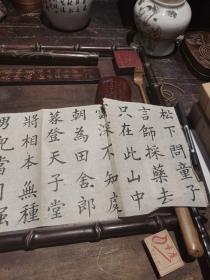 松下問童子
言師採藥去
只在此山中
雲深不知處
朝為田舍郎
暮登天子堂
將相本無種
男兒當自強